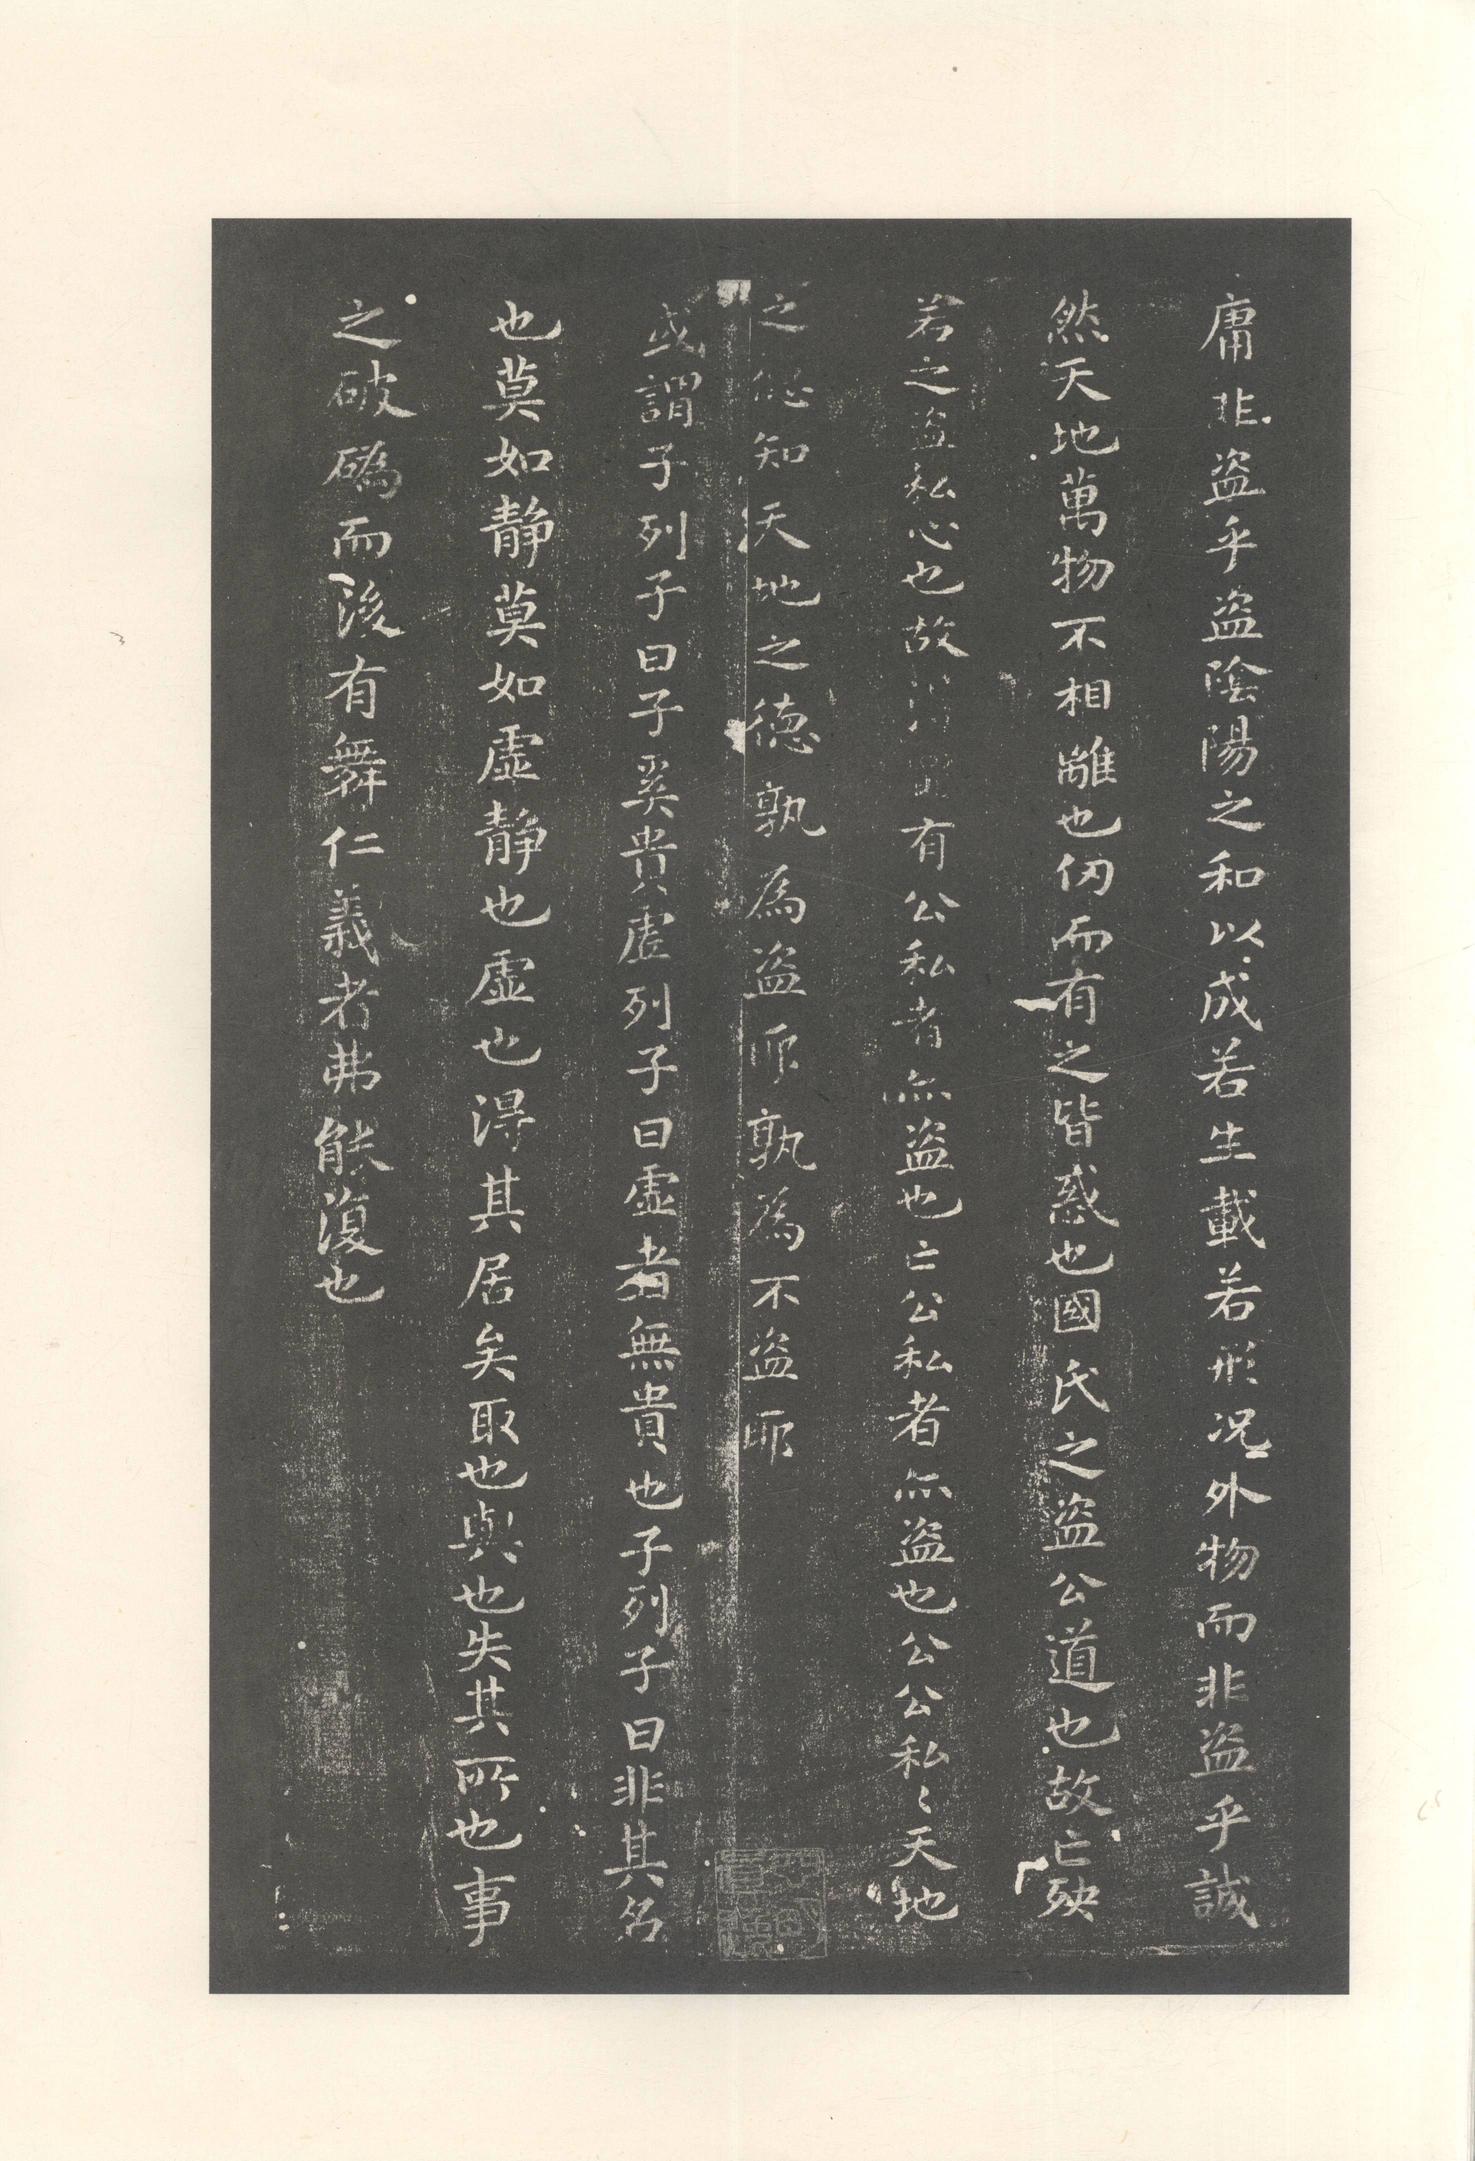 庸非盜乎盜陰陽之和以成若生載若形況外物而非盜乎誠
然天地萬物不相離也仞而有之皆惑也國氏之盜公道也故亡殃
若之盜私心也故有公私者亦盜也亡公私者亦盜也公公私〻天地
之德知天地之德孰為盜耶孰為不盜耶
或謂子列子曰子奚貴虛列子曰虛者無貴也子列子曰非其名
也莫如靜莫如虛靜也虛也得其居矣取也與也失其所也事
之破䃣而後有舞仁義者弗能復也